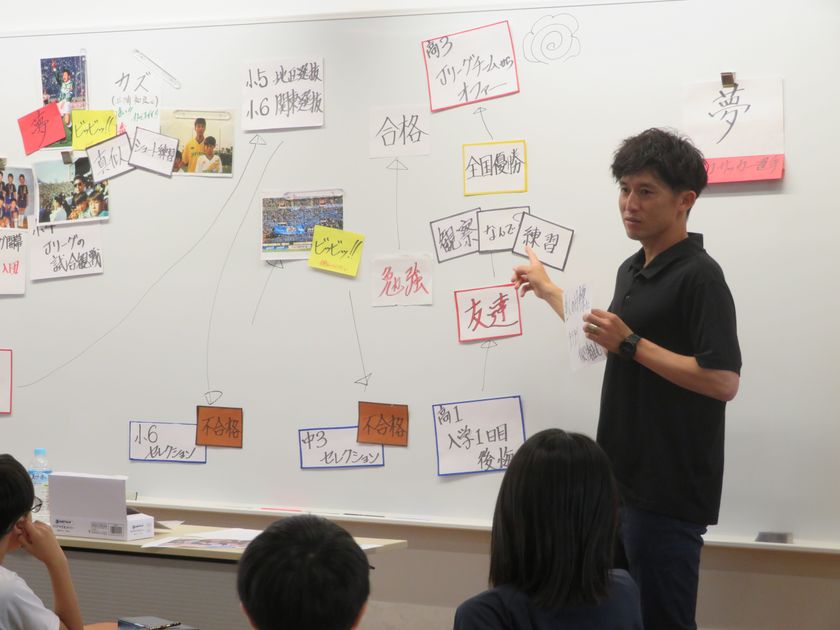 夢
ビビッ!!
カズ
真似
シュート練習
小5 地区選抜
小6 関東選抜
Jリーグの
試合観戦
入団
ビビッ!!
小6
セレクション
不合格
中3
セレクション
不合格
合格
勉強
高3
Jリーグチームから
オファー
全国優勝
観察
なんで
練習
友達
高1
入学1日目
後悔
夢